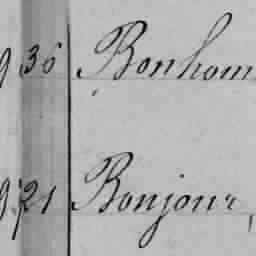 36 Bonhom
21 Bonjour,